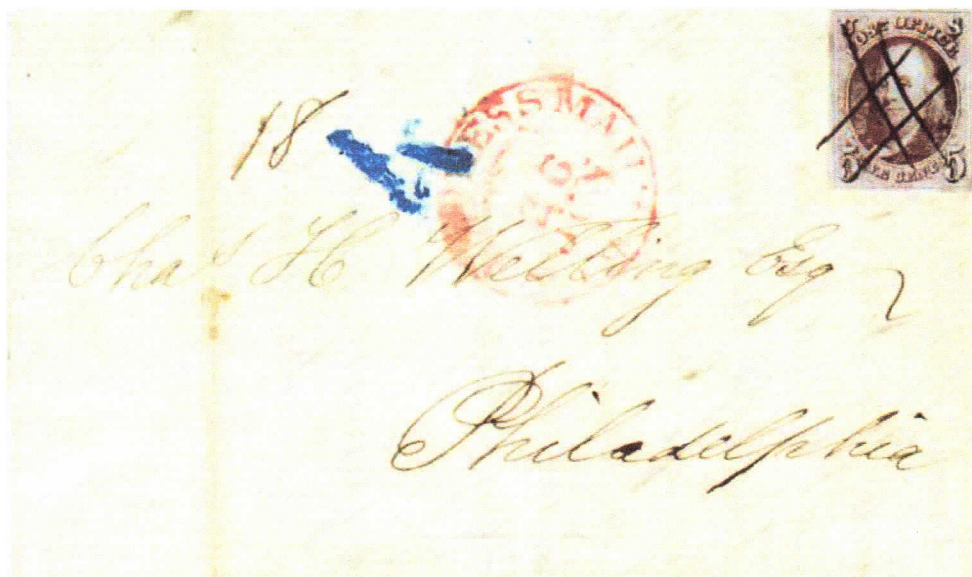 POST OFFICE
5 5
18
ESS MAIL
Chas H Welling Esq
Philadelphia